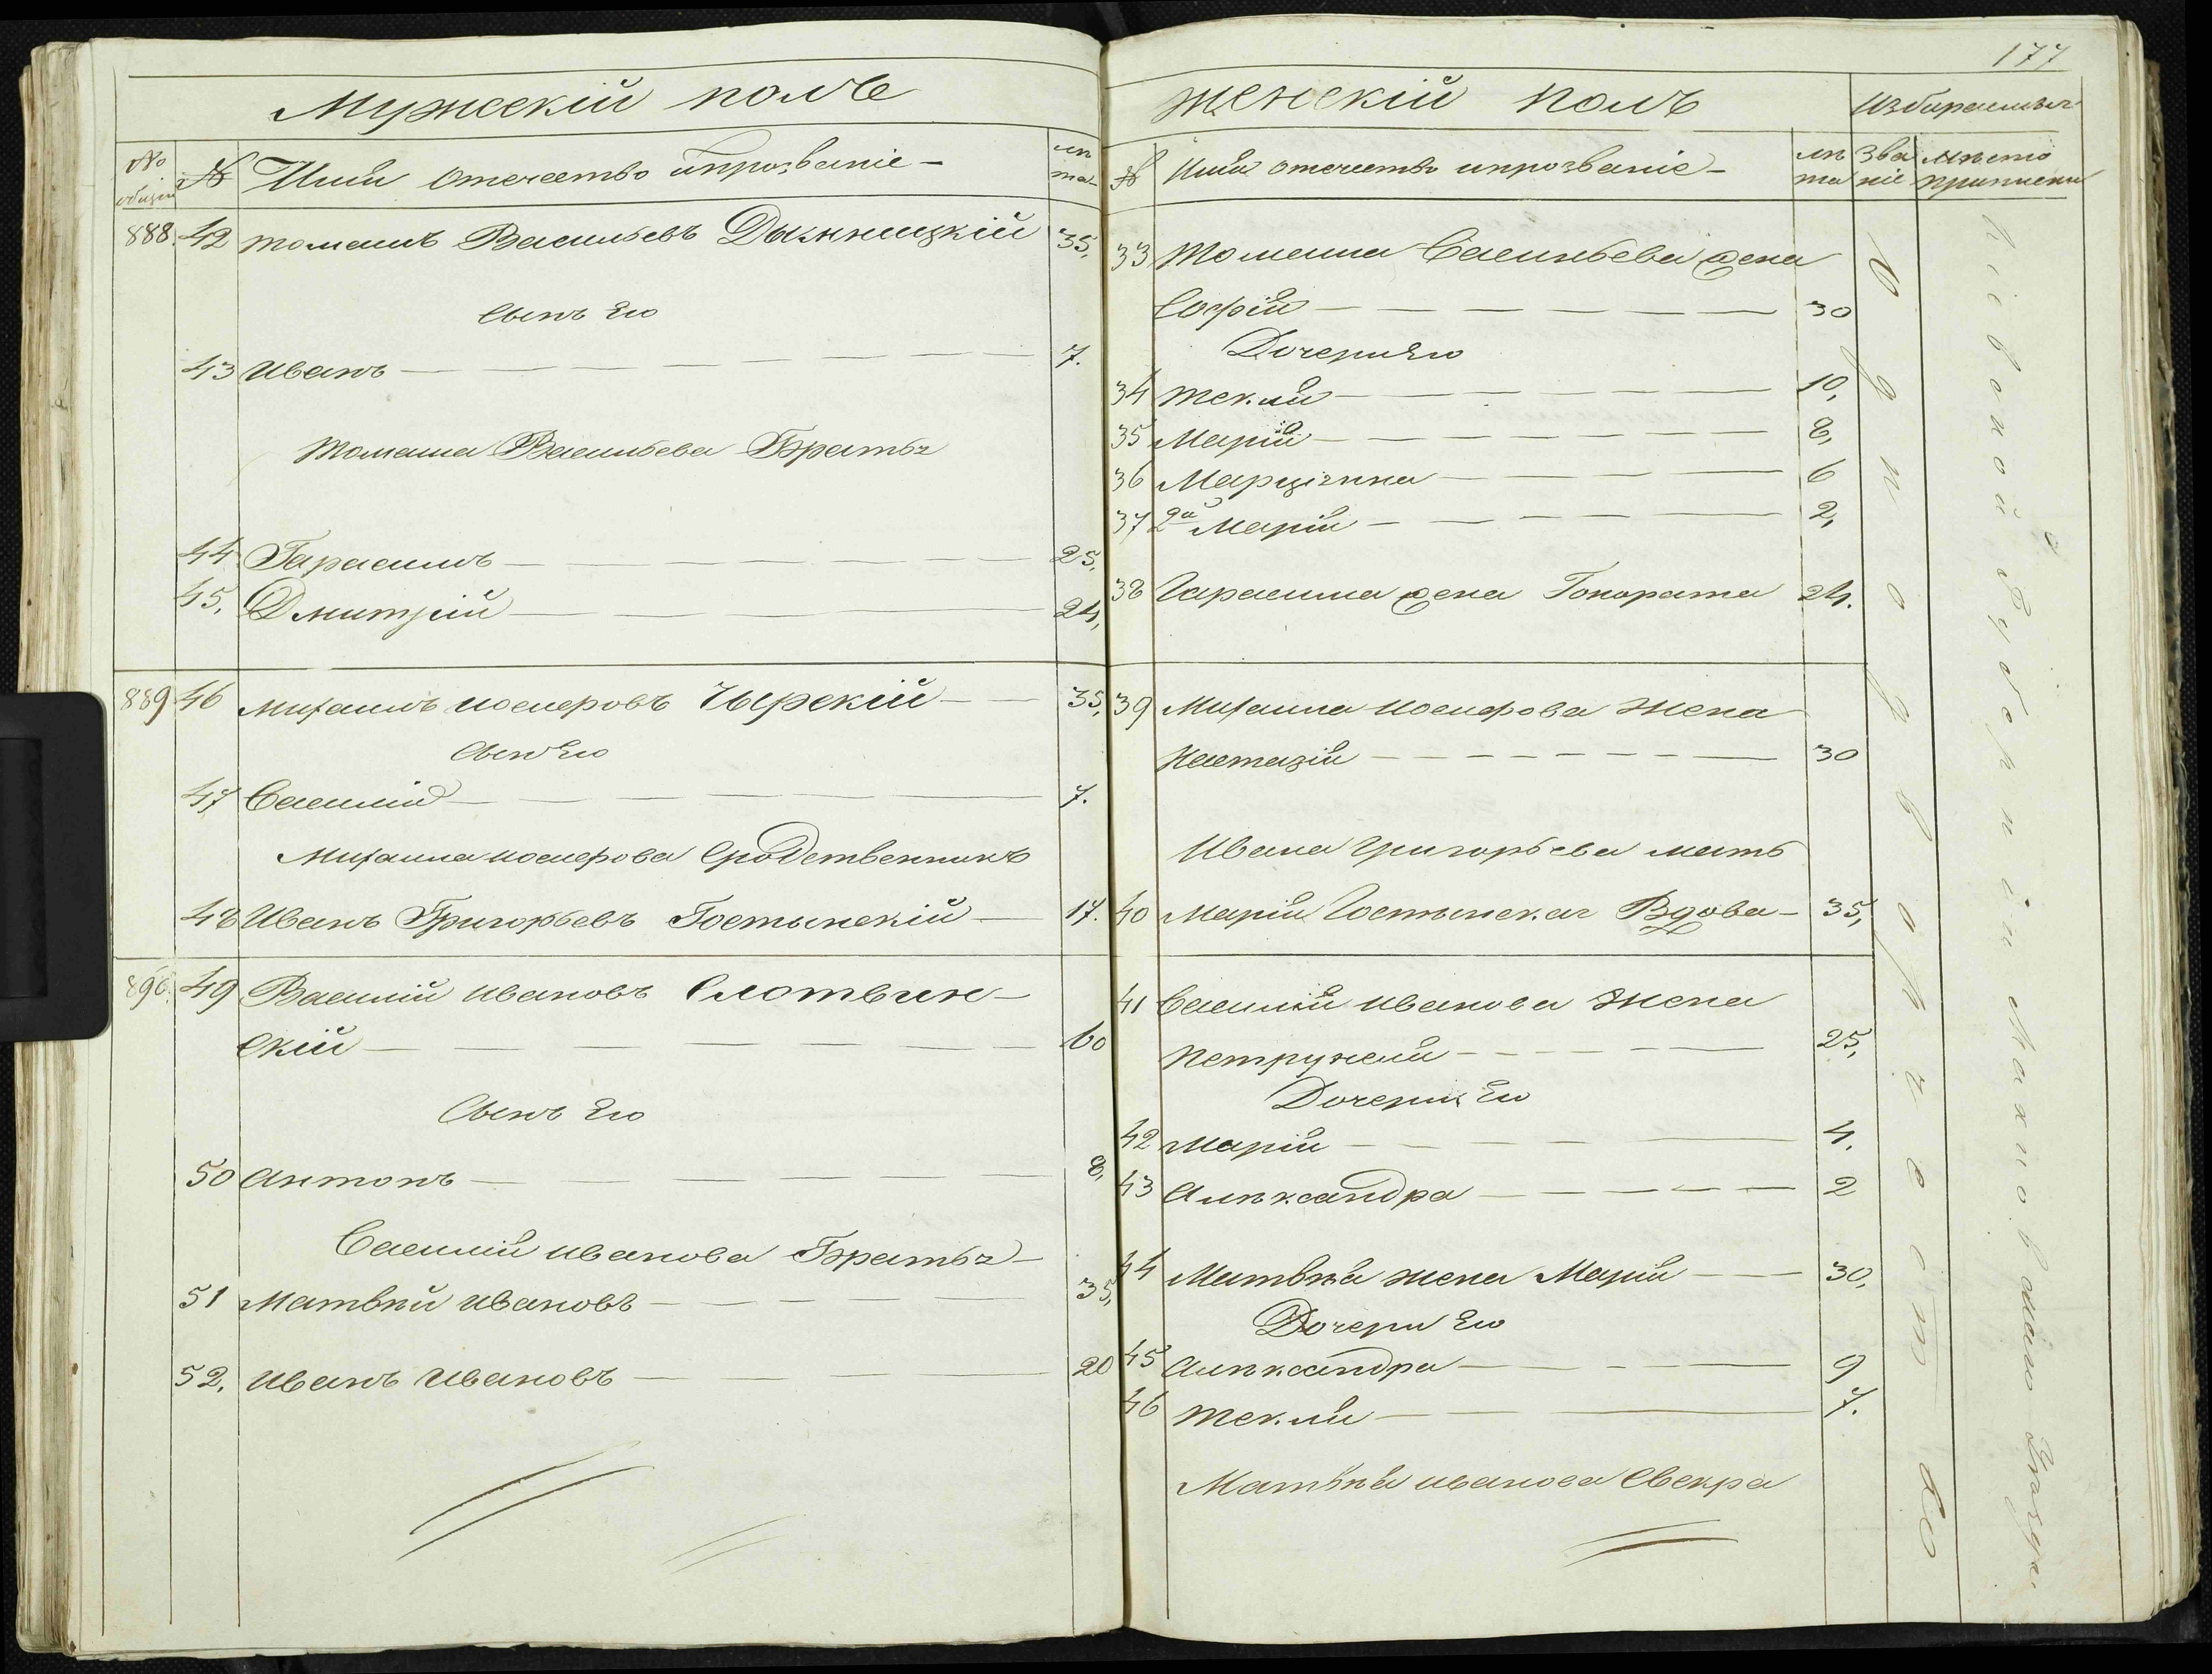 177
Мужескій полъ
№ общій
№
Имя Отечество ипрозваніе
лѣта
888. 42 Томашъ Васильевъ Дыжницкій 35,
Сынъ Его
43 Иванъ 7.
Томаша Васильева Братья
44 Гарасимъ 25.
45. Дмитрій 24,
889 46 Михаилъ Иосиферовъ Чырскій 35,
Сынъ Его
47 Василій 7.
Михаила Иосифова Сродственникъ
48 Иванъ Григорьевъ Гостынскій 17.
890. 49 Василій Ивановъ Слотвин-
скій 60
Сынъ Его
50 Антонъ 8,
Василія Иванова Братья
51 Матвѣй Ивановъ 35,
52. Иванъ Ивановъ 20
Женскій полъ
Избираемыя
№
Имя отечество ипрозваніе
лѣта
Званіе
Мѣсто приписки
33 Томаша Васильева жена
Софія 30
Дочери Его
34 Текля 10,
35 Марія 8,
36 Марціянна 6
37 2я Марія 2,
38 Гарасима жена Гонората 24.
39 Михаила Иосифова Жена
Настазія 30
Ивана Григорьева мать
40 Марія Гостынская Вдова 35,
41 Василія Иванова Жена
Петрунеля 25,
Дочери Его
42 Марія 4.
43 Алѣксандра 2
44 Матвѣя жена Марія 30,
Дочери Его
45 Алѣксандра 9
46 Текля 7.
Матвѣя Иванова Свекра
Однодворчество
Кіевской Губерніи Махновскаго Уѣзда